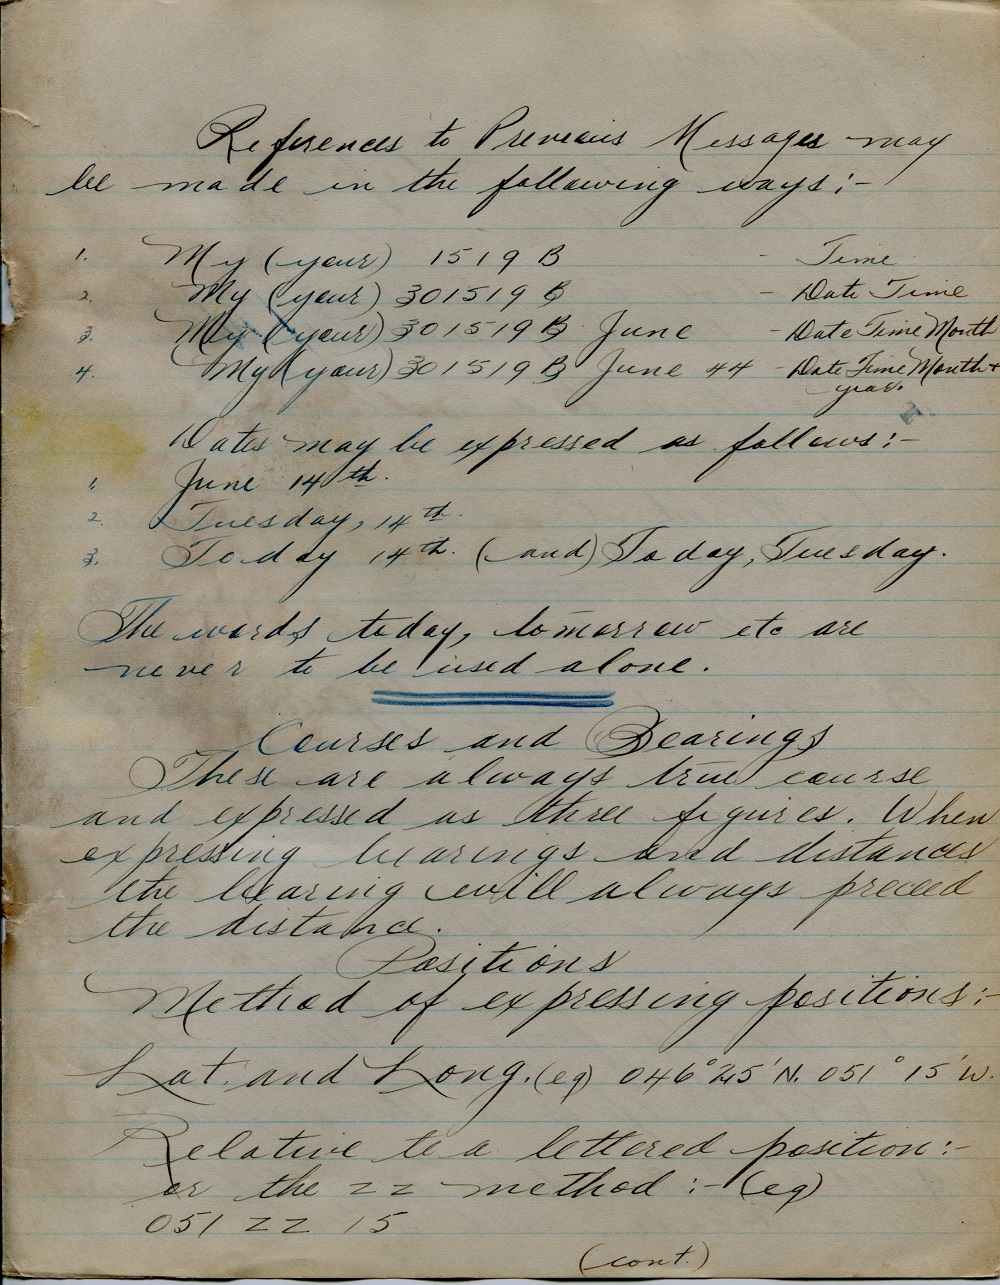 References to Previous Messages may
be made in the following ways:-
1. My (your) 1519 B - Time
2. My (your) 301519 B - Date Time
3. My (your) 301519 B June - Date Time Month
4. My (your) 301519 B June 44 - Date Time Month +
year.
Dates may be expressed as follows:-
1. June 14th.
2. Tuesday, 14th.
3. Today 14th. (and) Today, Tuesday.
The words today, tomorrow etc are
never to be used alone.
Courses and Bearings
These are always true course
and expressed as three figures. When
expressing bearings and distances
the bearing will always preceed
the distance.
Positions
Method of expressing positions:-
Lat. and Long. (eg) 046° 25' N. 051° 15' W.
Relative to a lettered position:-
or the ZZ method:- (eg)
051 ZZ 15
(cont.)